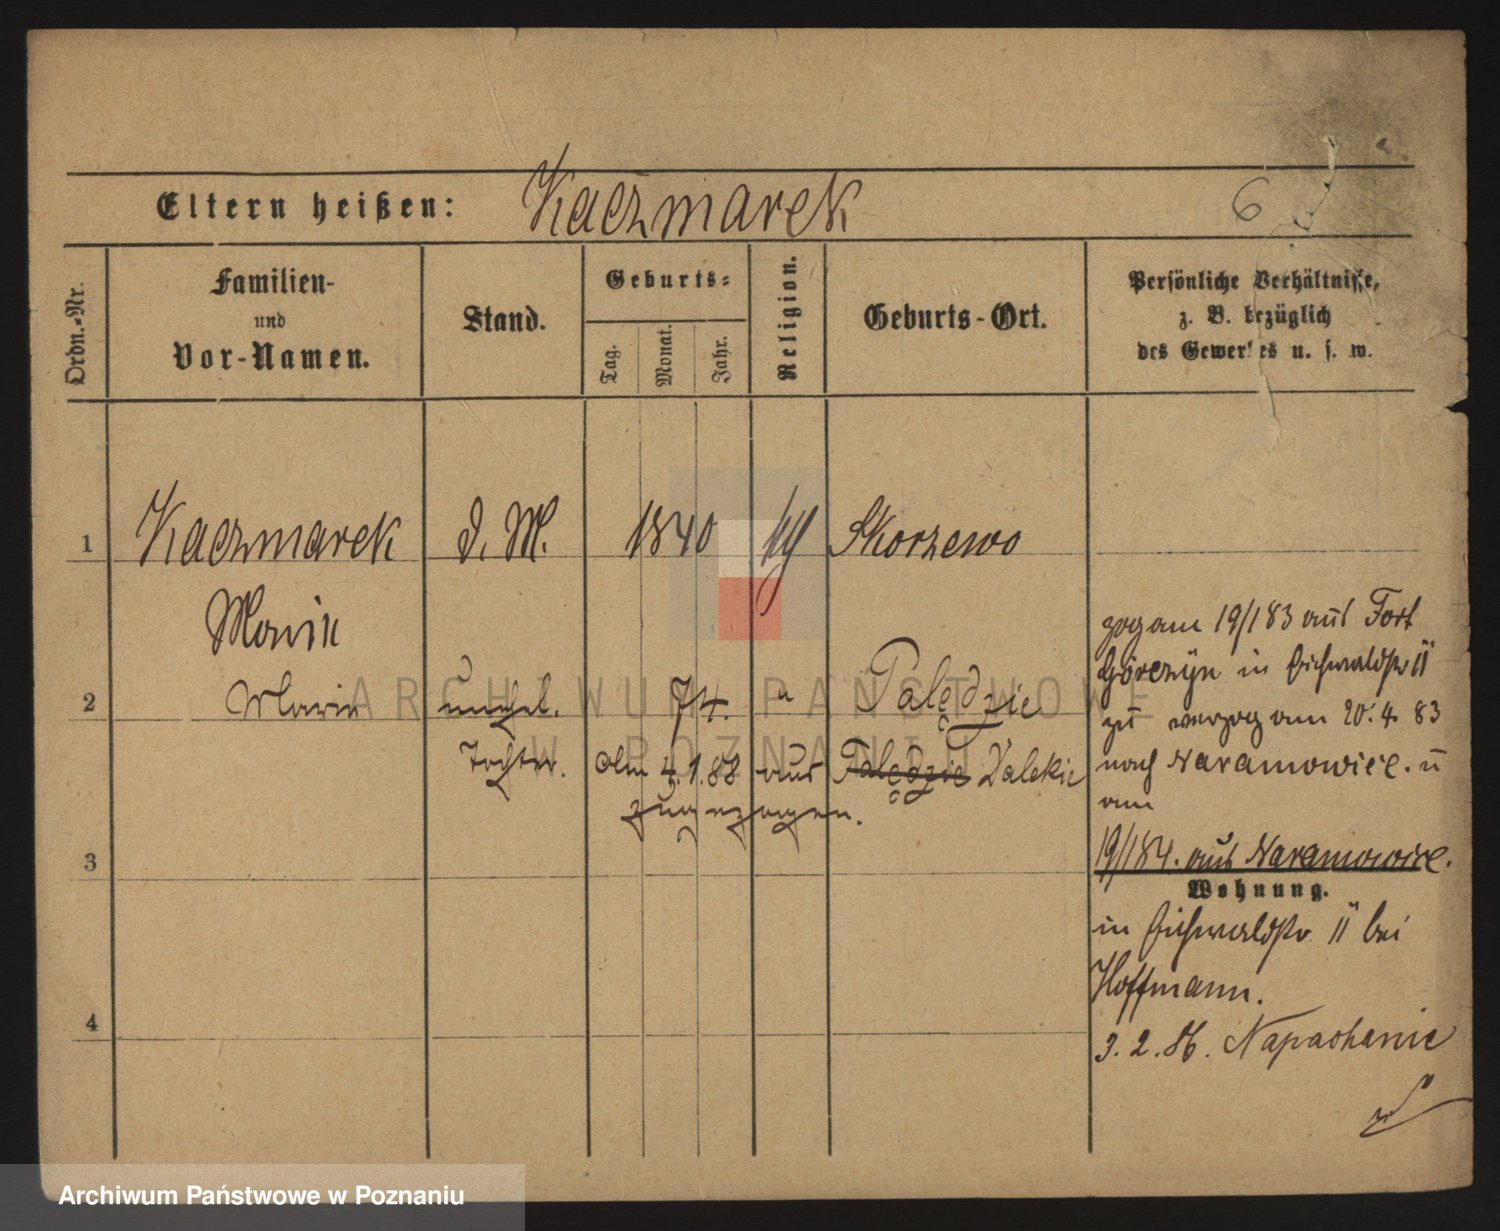 Eltern heißen: Kaczmarek 6
Ordn.-Nr.
Familien-
und
Vor-Namen.
Stand.
Geburts-
Tag. Monat. Jahr.
Religion.
Geburts-Ort.
Persönliche Verhältnisse,
z. B. bezüglich
des Gewerkes u. s. w.
1 Kaczmarek d. M. 1840 Skorzewo
Marie
2 Marie unehel. 74. " Palędzie
Tochter. Am 4.1.88 aus Palędzie Dalekie
zugezogen.
3
4
zog am 19/1 83 aus Fort
Górczyn in Eichwaldstr 11
zu verzog am 20.4.83
nach Naramowice. u
am
19/1 84. aus Naramowice.
Wohnung.
in Eichwaldstr 11 bei
Hoffmann.
3.2.86. Napachanie
ARCHIWUM PAŃSTWOWE
W POZNANIU
Archiwum Państwowe w Poznaniu